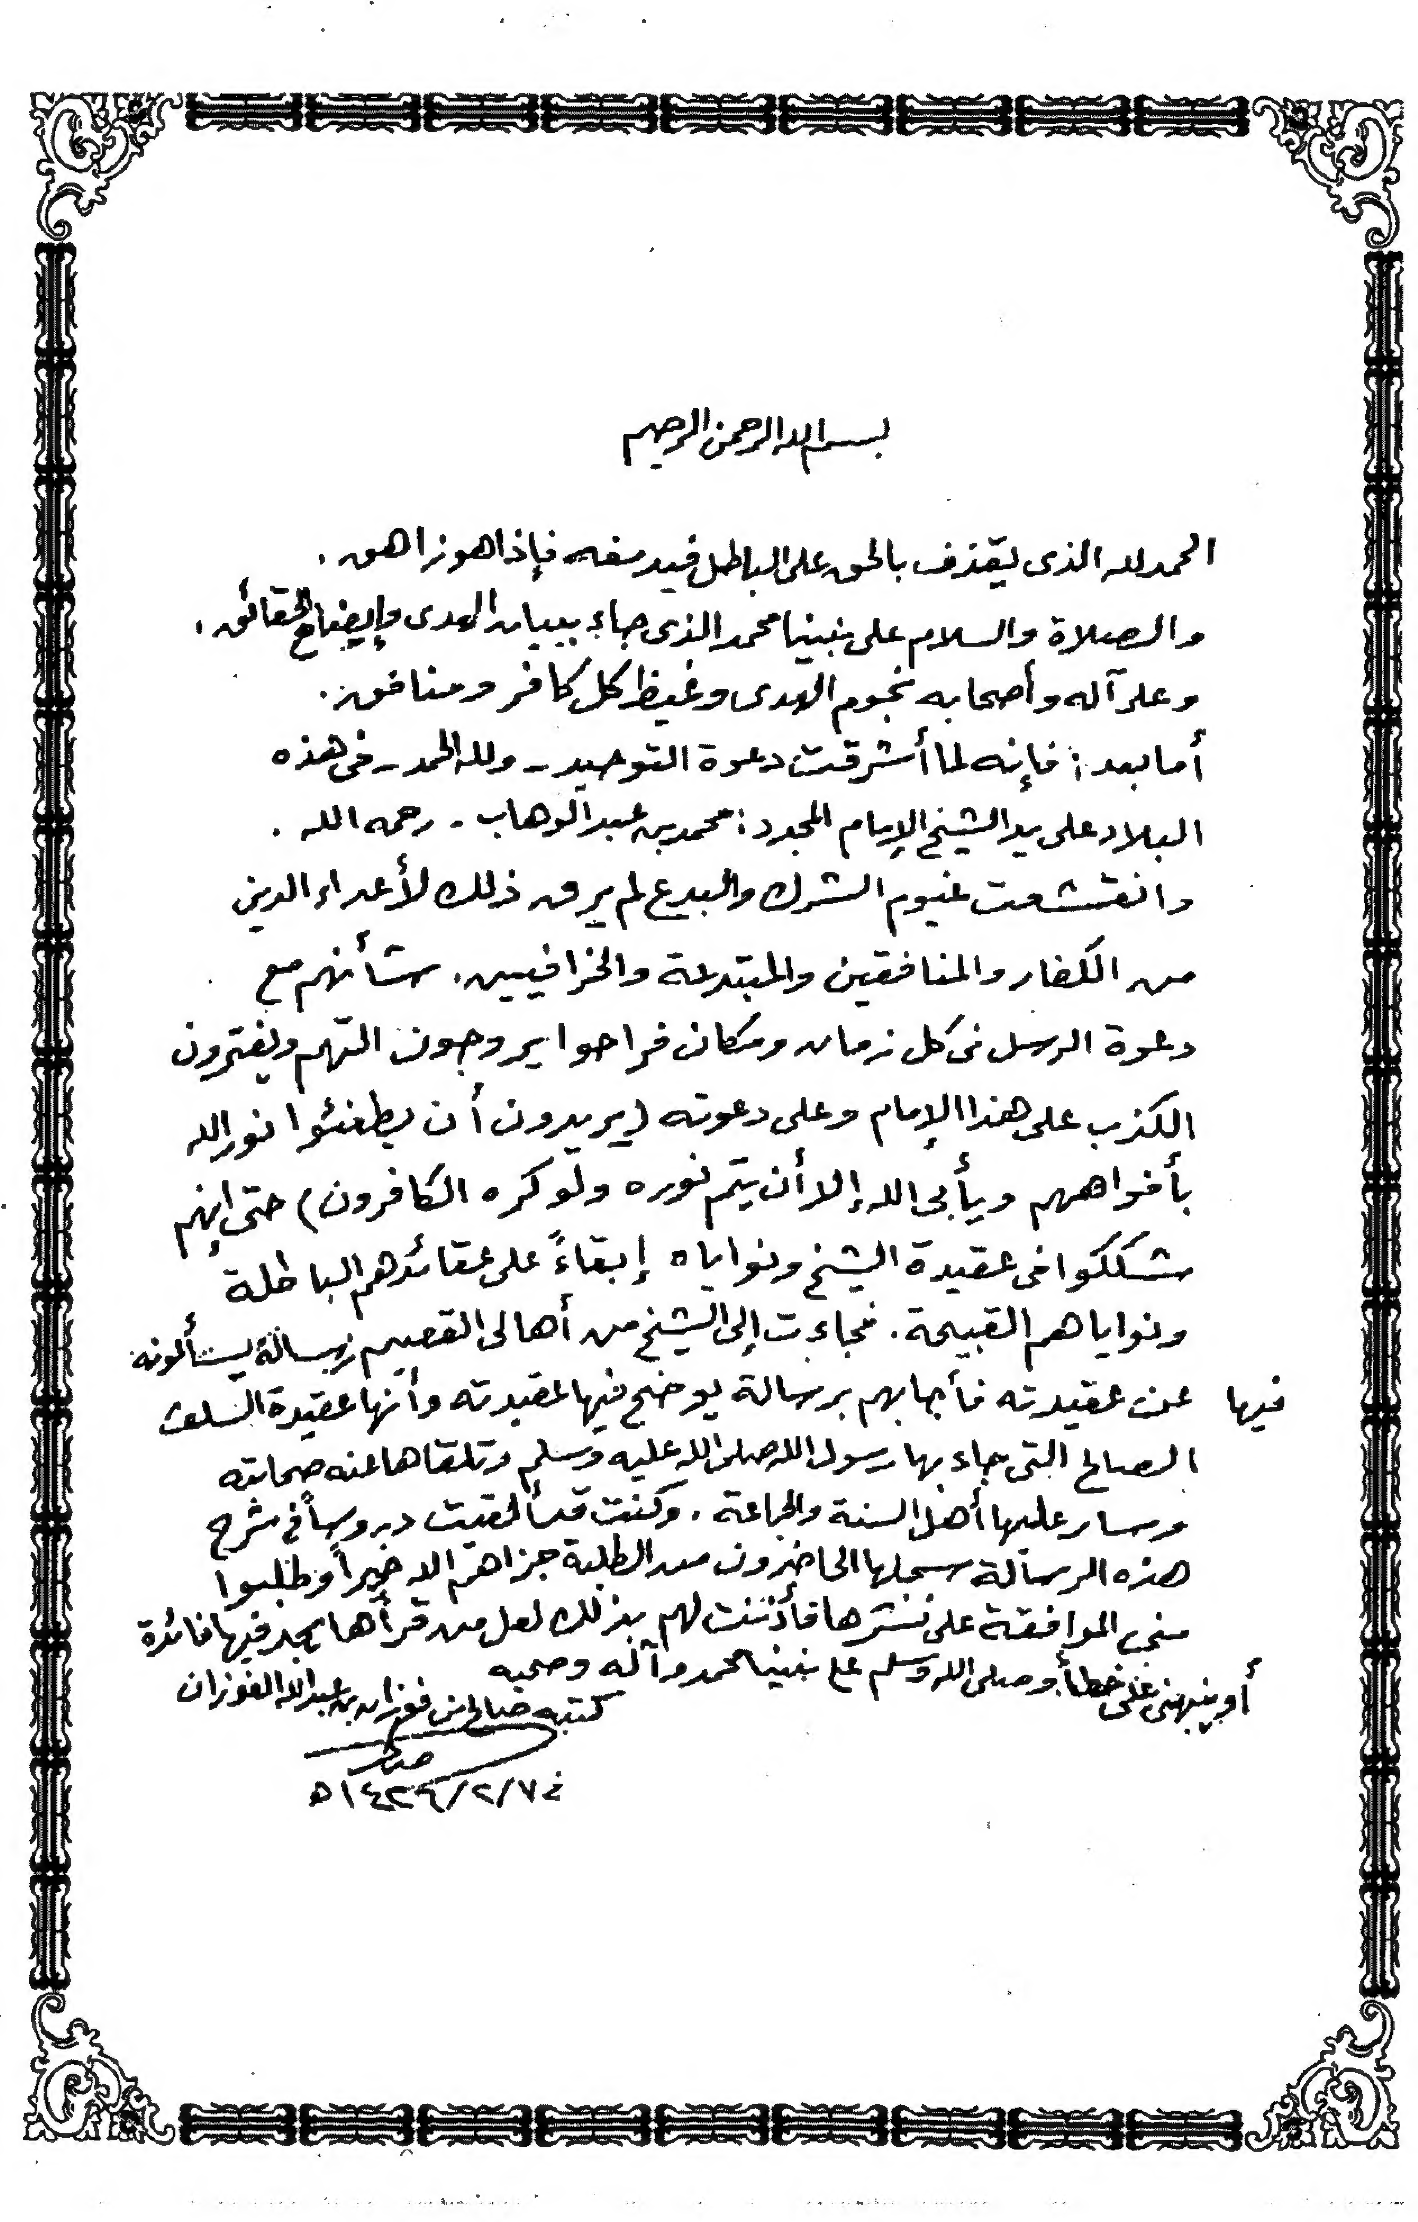 بسم الله الرحمن الرحيم
الحمد لله الذى يقذف بالحق على الباطل فيدمغه فإذا هو زاهق .
والصلاة والسلام على نبينا محمد الذى جاء ببيان الهدى وإيضاح الحقائق .
وعلى آله وأصحابه نجوم الهدى وغيظ كل كافر ومنافق .
أما بعد : فإنه لما أشرقت دعوة التوحيد - ولله الحمد - فى هذه
البلاد على يد الشيخ الإمام المجدد : محمد بن عبد الوهاب - رحمه الله .
وانقشعت غيوم الشرك والبدع لم يرق ذلك لأعداء الدين
من الكفار والمنافقين والمبتدعة والخرافيين . شأنهم مع
دعوة الرسل فى كل زمان ومكان فراحوا يروجون التهم ويفترون
الكذب على هذا الإمام وعلى دعوته (يريدون أن يطفئوا نور الله
بأفواههم ويأبى الله إلا أن يتم نوره ولو كره الكافرون) حتى إنهم
شككوا فى عقيدة الشيخ ونواياه إبقاءً على عقائدهم الباطلة
ونواياهم القبيحة . فجاءت إلى الشيخ من أهالى القصيم رسالة يسألونه
فيها عن عقيدته فأجابهم برسالة يوضح فيها عقيدته وأنها عقيدة السلف
الصالح التى جاء بها رسول الله صلى الله عليه وسلم وتلقاها عنه صحابته
وسار عليها أهل السنة والجماعة . وكنت قد ألقيت دروساً فى شرح
هذه الرسالة سجلها الحاضرون من الطلبة جزاهم الله خيراً وطلبوا
منى الموافقة على نشرها فأذنت لهم بذلك لعل من قرأها يجد فيها فائدة
أو ينبهنى على خطأ . وصلى الله وسلم على نبينا محمد وآله وصحبه
كتبه صالح بن فوزان بن عبد الله الفوزان
فى ٧/٢/١٤٢٦ه